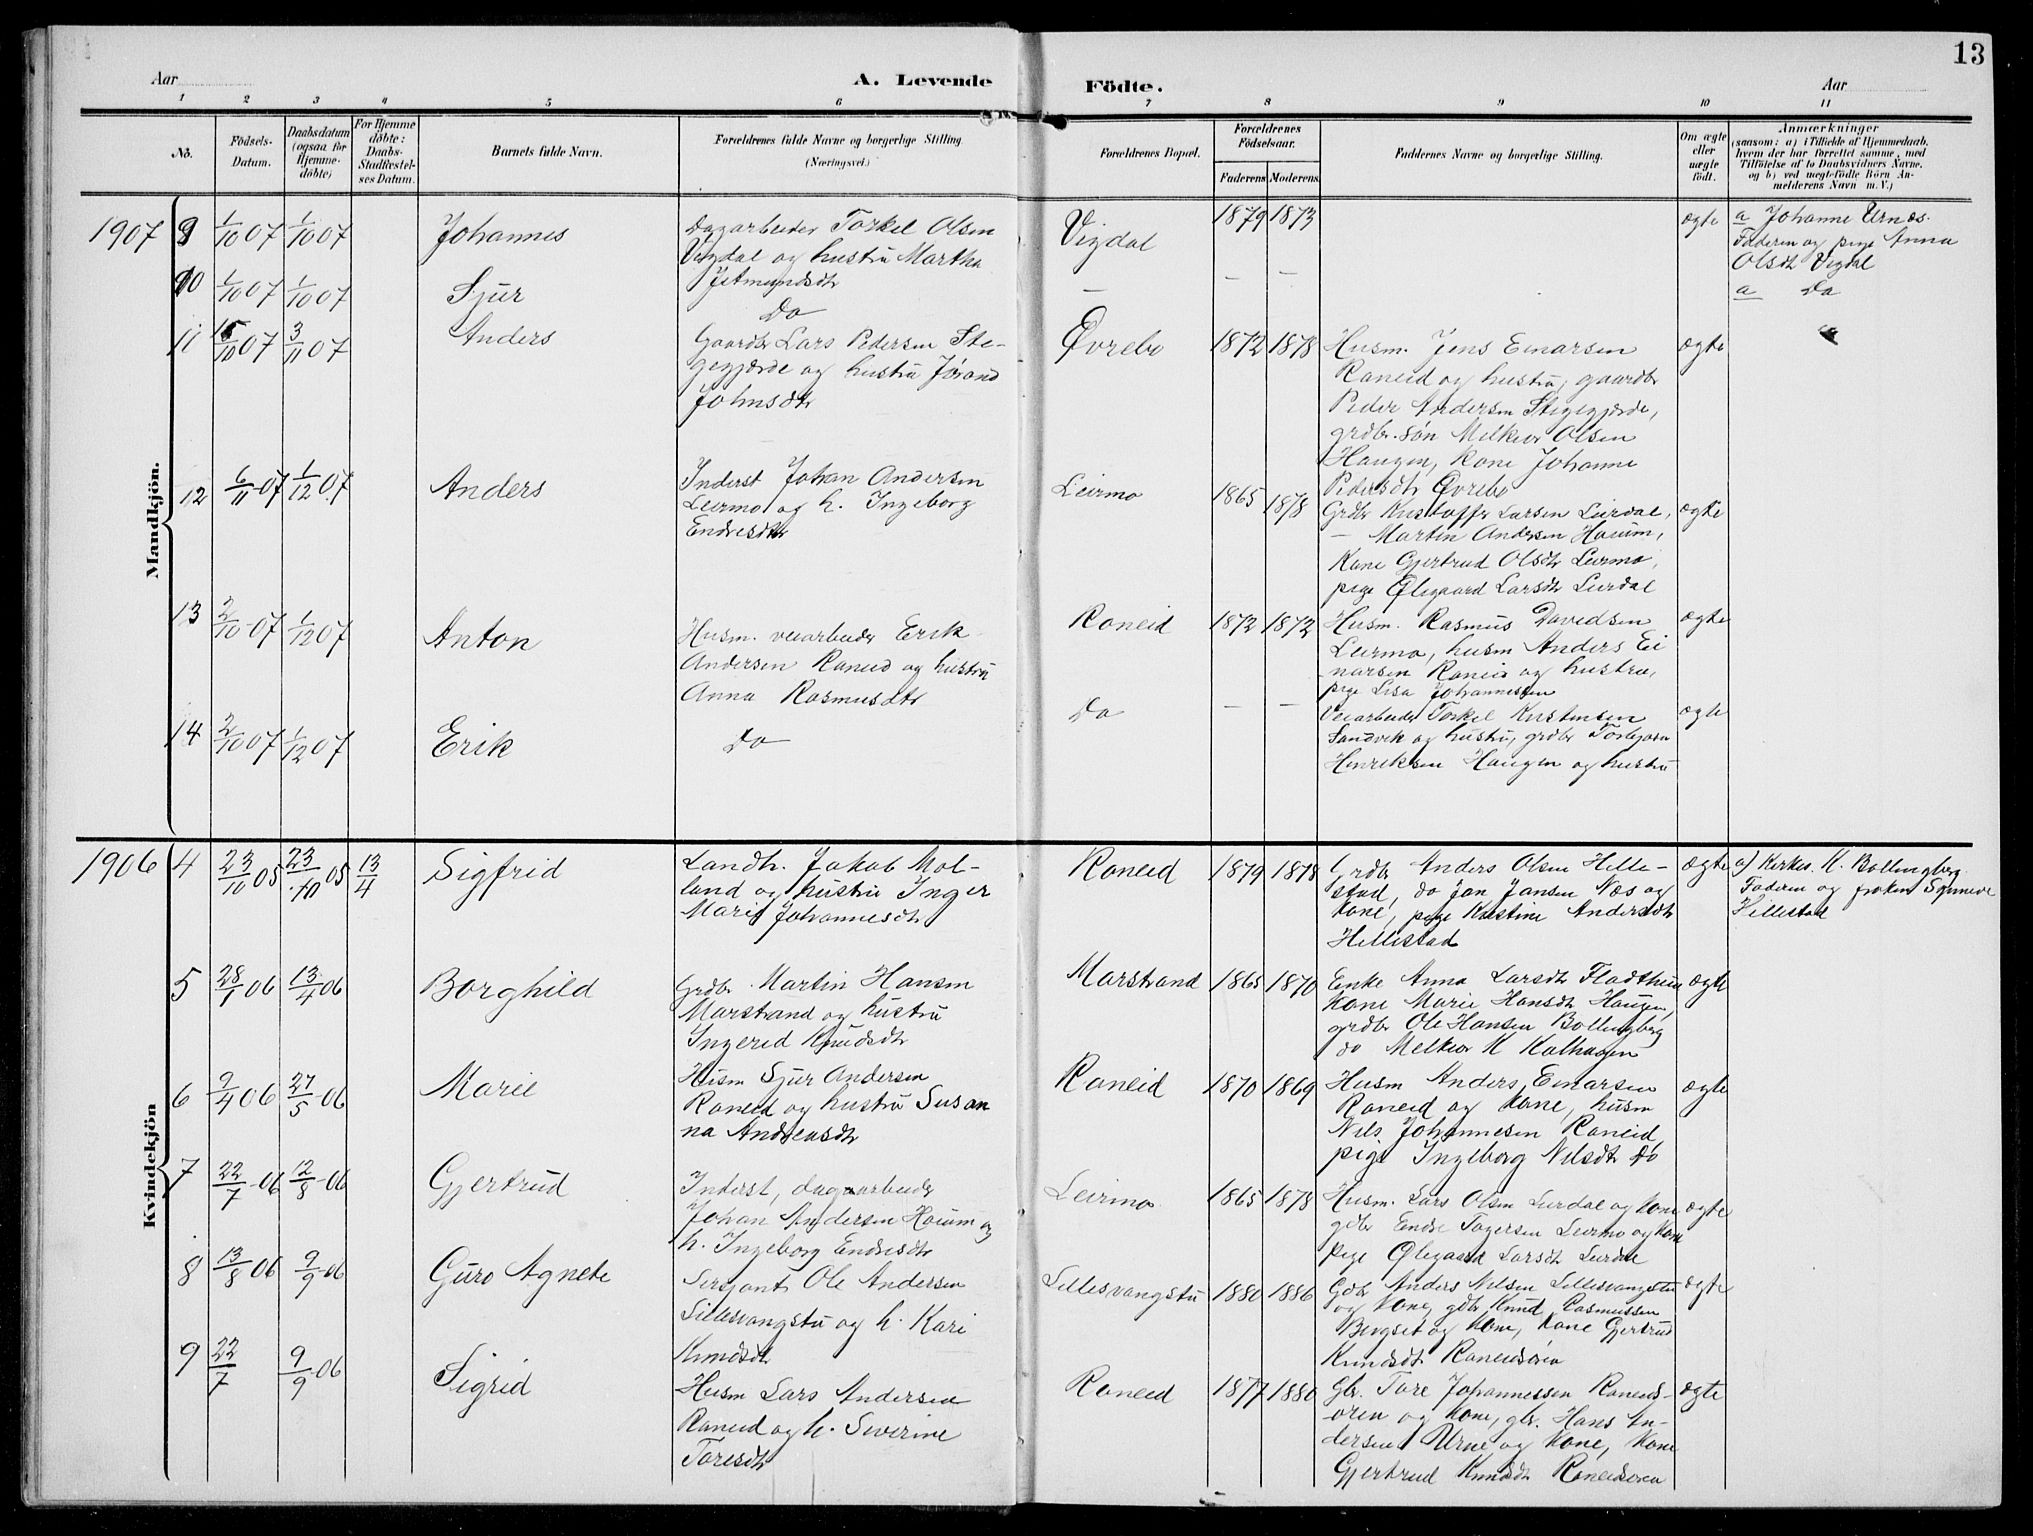 13
Aar A. Levende Födte. Aar
1 2 3 4 5 6 7 8 9 10 11
No.
Födsels-
Datum.
Daabsdatum
(ogsaa for
Hjemme-
døbte)
For Hjemme
döbte:
Daabs-
Stadfæstel-
ses Datum.
Barnets fulde Navn.
Forældrenes fulde Navne og borgerlige Stilling
(Næringsvei.)
Forældrenes Bopæl.
Forældrenes
Födselsaar.
Faderens Moderens
Faddernes Navne og borgerlige Stilling.
Om ægte
eller
uægte
født.
Anmærkninger
(saasom: a) i Tilfælde af Hjemmedaab,
hvem der har forrettet samme, med
Tilføielse af to Daabsvidners Navne.
og b) ved uægtefødte Börn An-
melderens Navn m. V.)
Mandkjön.
1907 9 1/10 07 1/10 07 Johannes
Dagarbeider Torkel Olsen
Vigdal og hustru Martha
Jetmundsdtr
Vigdal 1879 1873 ægte
a Johanne Urnes.
Faderen og pige Anna
Olsdtr Vigdal
10 1/10 07 1/10 07 Sjur
Do
— — —
a Do
11 15/10 07 3/11 07 Anders
Gaardbr Lars Pedersen Ste-
gegjærde og hustru Jørand
Johnsdtr
Øvrebo 1872 1878
Husm. Jens Einarsen
Raneid og hustru, gaardbr
Peder Andersen Stegegjærde,
grdbr. søn Melkior Olsen
Haugen, Kone Johanne
Pedersdtr Øvrebo
ægte
12 6/11 07 1/12 07 Anders
Inderst Johan Andersen
Leirmo og h. Ingeborg
Endresdtr
Leirmo 1865 1878
Grdbr Kristoffer Larsen Leirdal,
— Martin Andersen Høium,
Kone Gjertrud Olsdtr Leirmo,
pige Ølegaard Larsdtr Leirdal
ægte
13 2/10 07 1/12 07 Anton
Husm. veiarbeider Erik
Andersen Raneid og hustru
Anna Rasmusdtr
Raneid 1872 1872
Husm. Rasmus Davidsen
Leirmo, husm Anders Ei
narsen Raneid og hustru,
pige Lisa Johannesen
ægte
14 2/10 07 1/12 07 Erik
Do
Do — —
Veiarbeider Torkel Kristensen
Sandvik og hustru, grdbr Torbjørn
Henriksen Haugen og hustru
ægte
Kvindekjön
1906 4 23/10 05 23/10 05 13/4 Sigfrid
Landh. Jakob Mol-
land og hustru Inger
Marie Johannesdtr
Raneid 1879 1878
Grdbr Anders Olsen Hille-
stad, do Jan Jansen Næs og
Kone, pige Kristine Andersdtr
Hillestad
ægte
a) Kirkes. K. Bollingberg
Faderen og frøken Synneve
Hillestad
5 28/1 06 13/4 06 Borghild
Grdbr Martin Hansen
Marstrand og hustru
Ingerid Knudsdtr
Marstrand 1865 1870
Enke Anna Larsdtr Fladthun
Kone Marie Hansdtr Haugen,
grdbr Ole Hansen Bollingberg
do Melkior K Kalhagen
ægte
6 9/4 06 27/5 06 Marie
Husm Sjur Andersen
Raneid og hustru Susan
na Andreasdtr
Raneid 1870 1869
Husm Anders Einarsen
Raneid og Kone, husm
Nils Johannesen Raneid,
pige Ingeborg Nilsdtr do
ægte
7 22/7 06 12/8 06 Gjertrud
Inderst, dagarbeider
Johan Andersen Høium og
h. Ingeborg Endresdtr
Leirmo 1865 1878
Husm. Lars Olsen Leirdal og Kone
gdbr Endre Togersen Leirmo og Kone
pige Ølegaard Larsdtr Leirdal
ægte
8 13/8 06 9/9 06 Guro Agnete
Sersjant Ole Andersen
Lillesvangstu og h. Kari
Knudsdtr
Lillesvangstu 1880 1886
Gdbr Anders Nilsen Lillesvangstu
og Kone, gdbr Knud Rasmussen
Bergset og Kone, Kone Gjertrud
Knudsdtr Raneidsøren
ægte
9 22/7 9/9 06 Sigrid
Husm Lars Andersen
Raneid og h. Severine
Toresdtr
Raneid 1877 1880
Gbr. Tore Johannessen Raneids-
øren og Kone, gbr. Hans An-
dersen Urne og Kone, Kone
Gjertrud Knudsdtr Raneidsøren
ægte